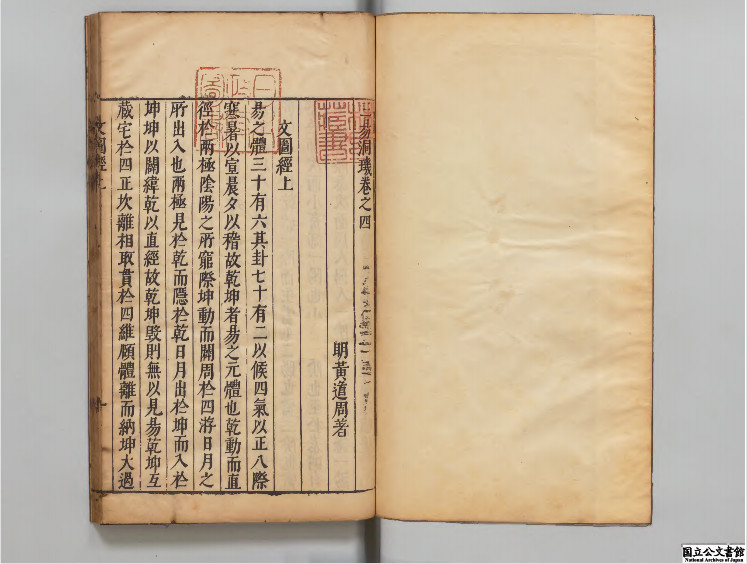 易洞璣卷之四
明黃道周著
文圖經上
易之體三十有六其卦七十有二以候四氣以正八際
寒暑以宣晨夕以稽故乾坤者易之元體也乾動而直
徑於兩極陰陽之所寵際坤動而闢周於四游日月之
所出入也兩極見於乾而隱於乾日月出於坤而入於
坤坤以闢緯乾以直經故乾坤毀則無以見易乾坤互
藏宅於四正坎離相取貫於四維頤體離而納坤大過
文圖經上
国立公文書館
National Archives of Japan